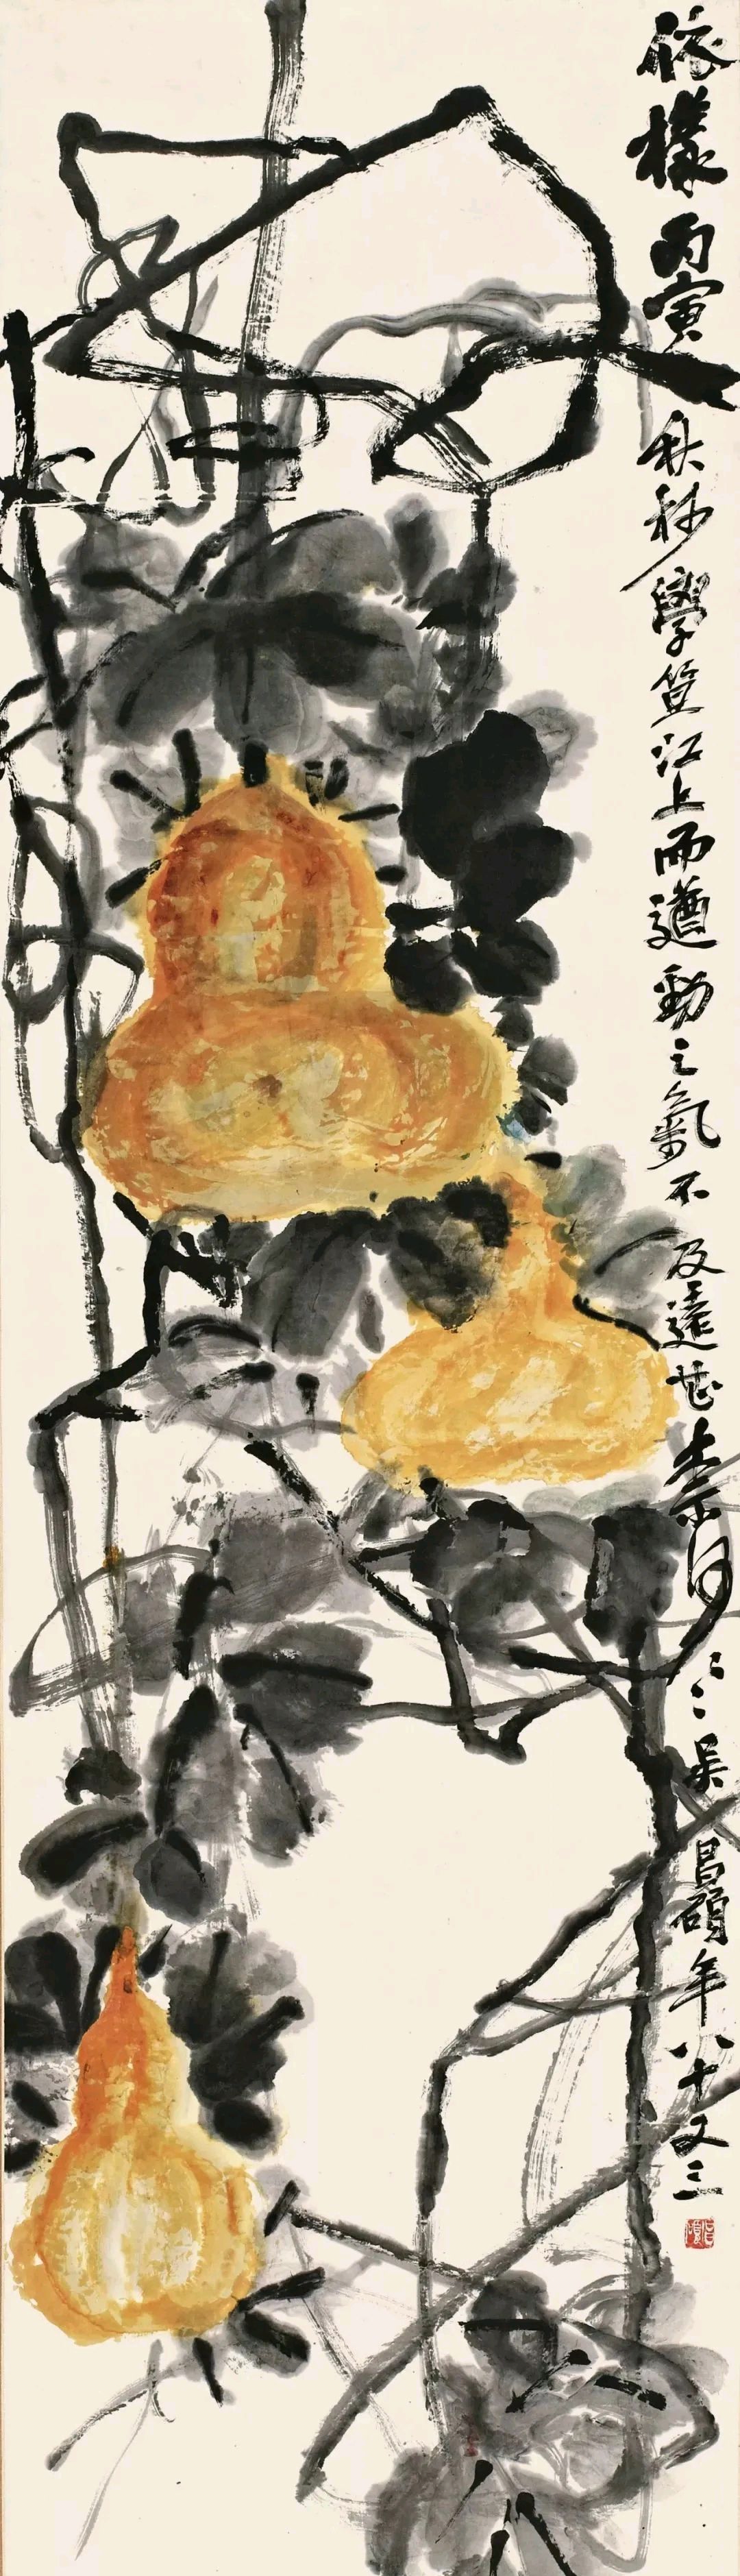 依樣丙寅秋杪學笪江上而遒勁之氣不及遠甚柰何柰何吳昌碩年八十又三